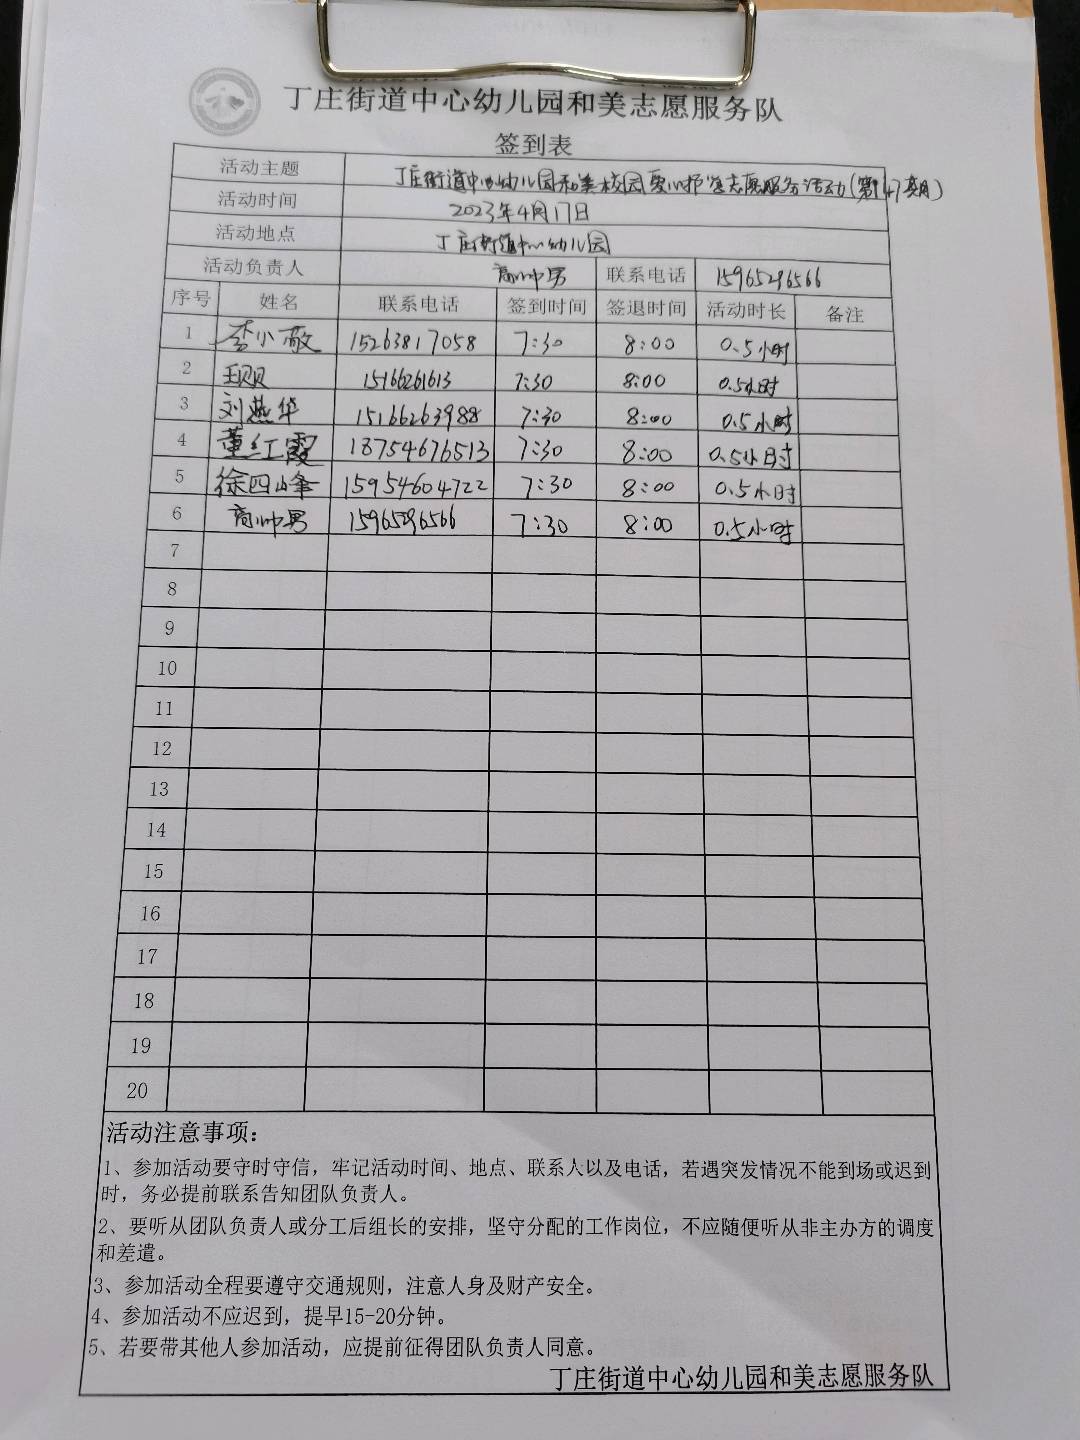 丁庄街道中心幼儿园和美志愿服务队
签到表
活动主题 丁庄街道中心幼儿园和美校园爱心护学志愿服务活动(第147期)
活动时间 2023年4月17日
活动地点 丁庄街道中心幼儿园
活动负责人 商帅男 联系电话 15965296566
序号 姓名 联系电话 签到时间 签退时间 活动时长 备注
1 李小敬 15263817058 7:30 8:00 0.5小时
2 王贝贝 15166261613 7:30 8:00 0.5小时
3 刘燕华 15166263988 7:30 8:00 0.5小时
4 董红霞 18754676513 7:30 8:00 0.5小时
5 徐四峰 15954604722 7:30 8:00 0.5小时
6 商帅男 15965296566 7:30 8:00 0.5小时
7
8
9
10
11
12
13
14
15
16
17
18
19
20
活动注意事项：
1、参加活动要守时守信，牢记活动时间、地点、联系人以及电话，若遇突发情况不能到场或迟到
时，务必提前联系告知团队负责人。
2、要听从团队负责人或分工后组长的安排，坚守分配的工作岗位，不应随便听从非主办方的调度
和差遣。
3、参加活动全程要遵守交通规则，注意人身及财产安全。
4、参加活动不应迟到，提早15-20分钟。
5、若要带其他人参加活动，应提前征得团队负责人同意。
丁庄街道中心幼儿园和美志愿服务队